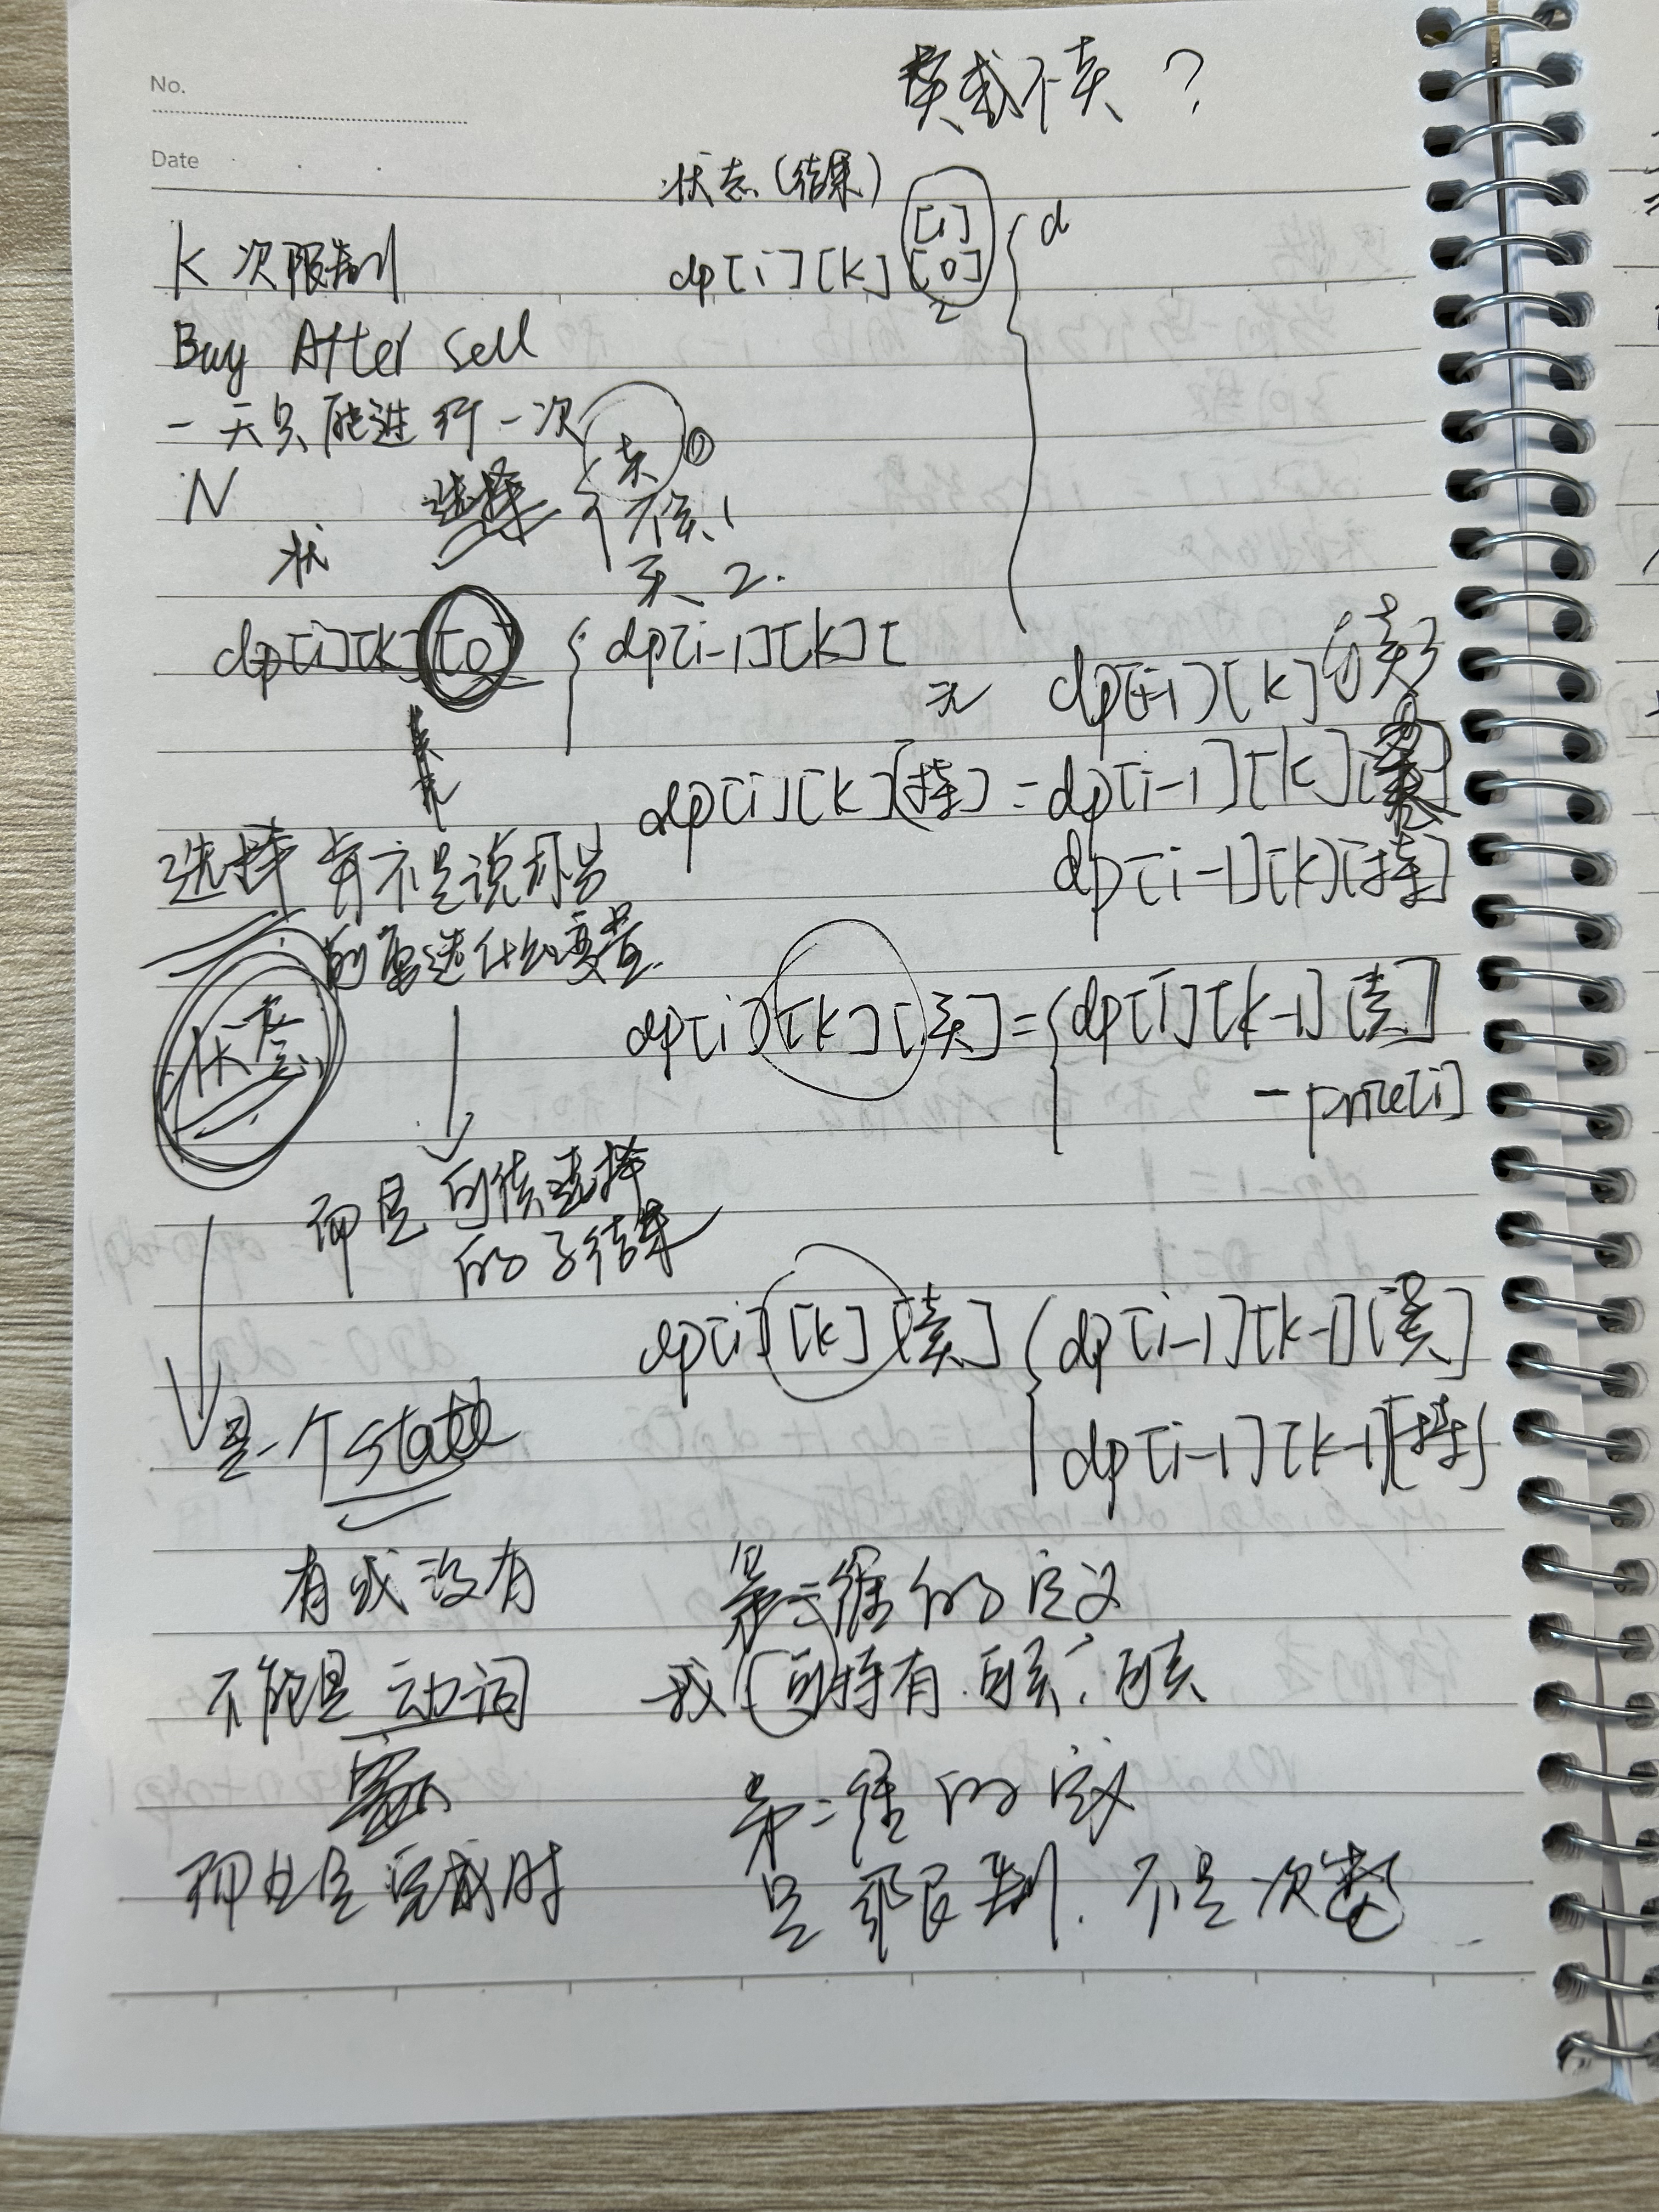 No.
卖或不卖?
Date
状态(结果)
[1]
K 次限制
dp[i][k][0]
d
2
Buy After Sell
一天只能进行一次
卖 0
N
选择
不卖 1
状
买 2.
dp[i][k][0]
dp[i-1][k][
dp[i-1][k][卖]
dp[i][k][持]=dp[i-1][k]
dp[i-1][k][持]
选择 并不是说
的需选什么变量.
状态
dp[i][k][买]={dp[i][k-1][卖]
- price[i]
而是 可供选择
的子结果
dp[i][k][卖] {dp[i-1][k-1][买]
dp[i-1][k-1][持]
是一个state
有或没有
第三维的定义
不能是 动词
我 可持有.可买.可卖
第二维的定义
而且是完成时
是 限制. 不是次数